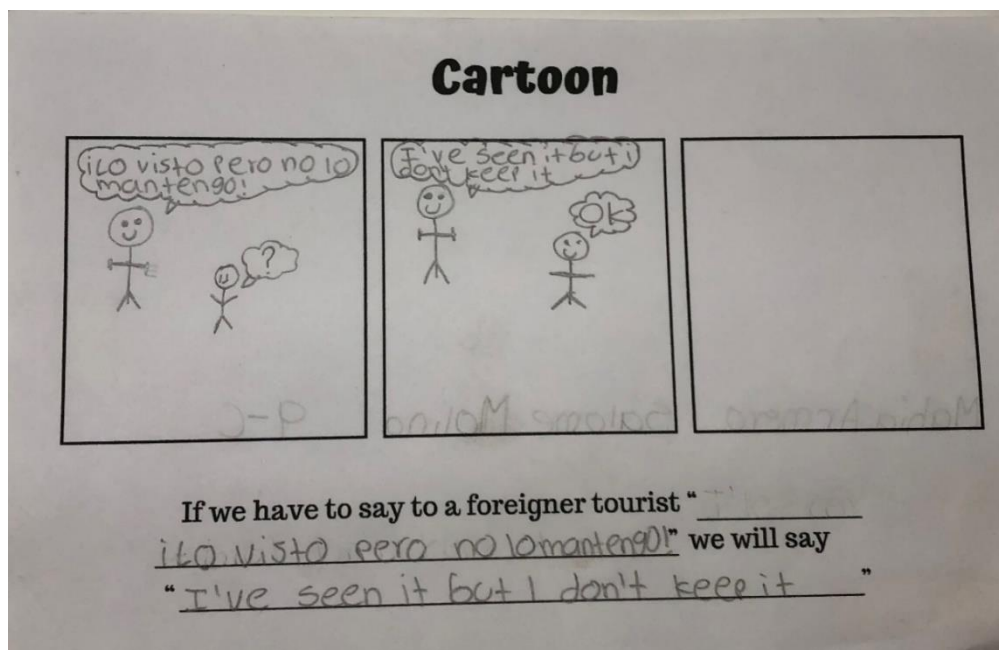 Cartoon
¡LO visto pero no lo
mantengo!
I've seen it but i
don't keep it
?
Ok
If we have to say to a foreigner tourist "
¡LO visto pero no lo mantengo!" we will say
"I've seen it but I don't keep it"